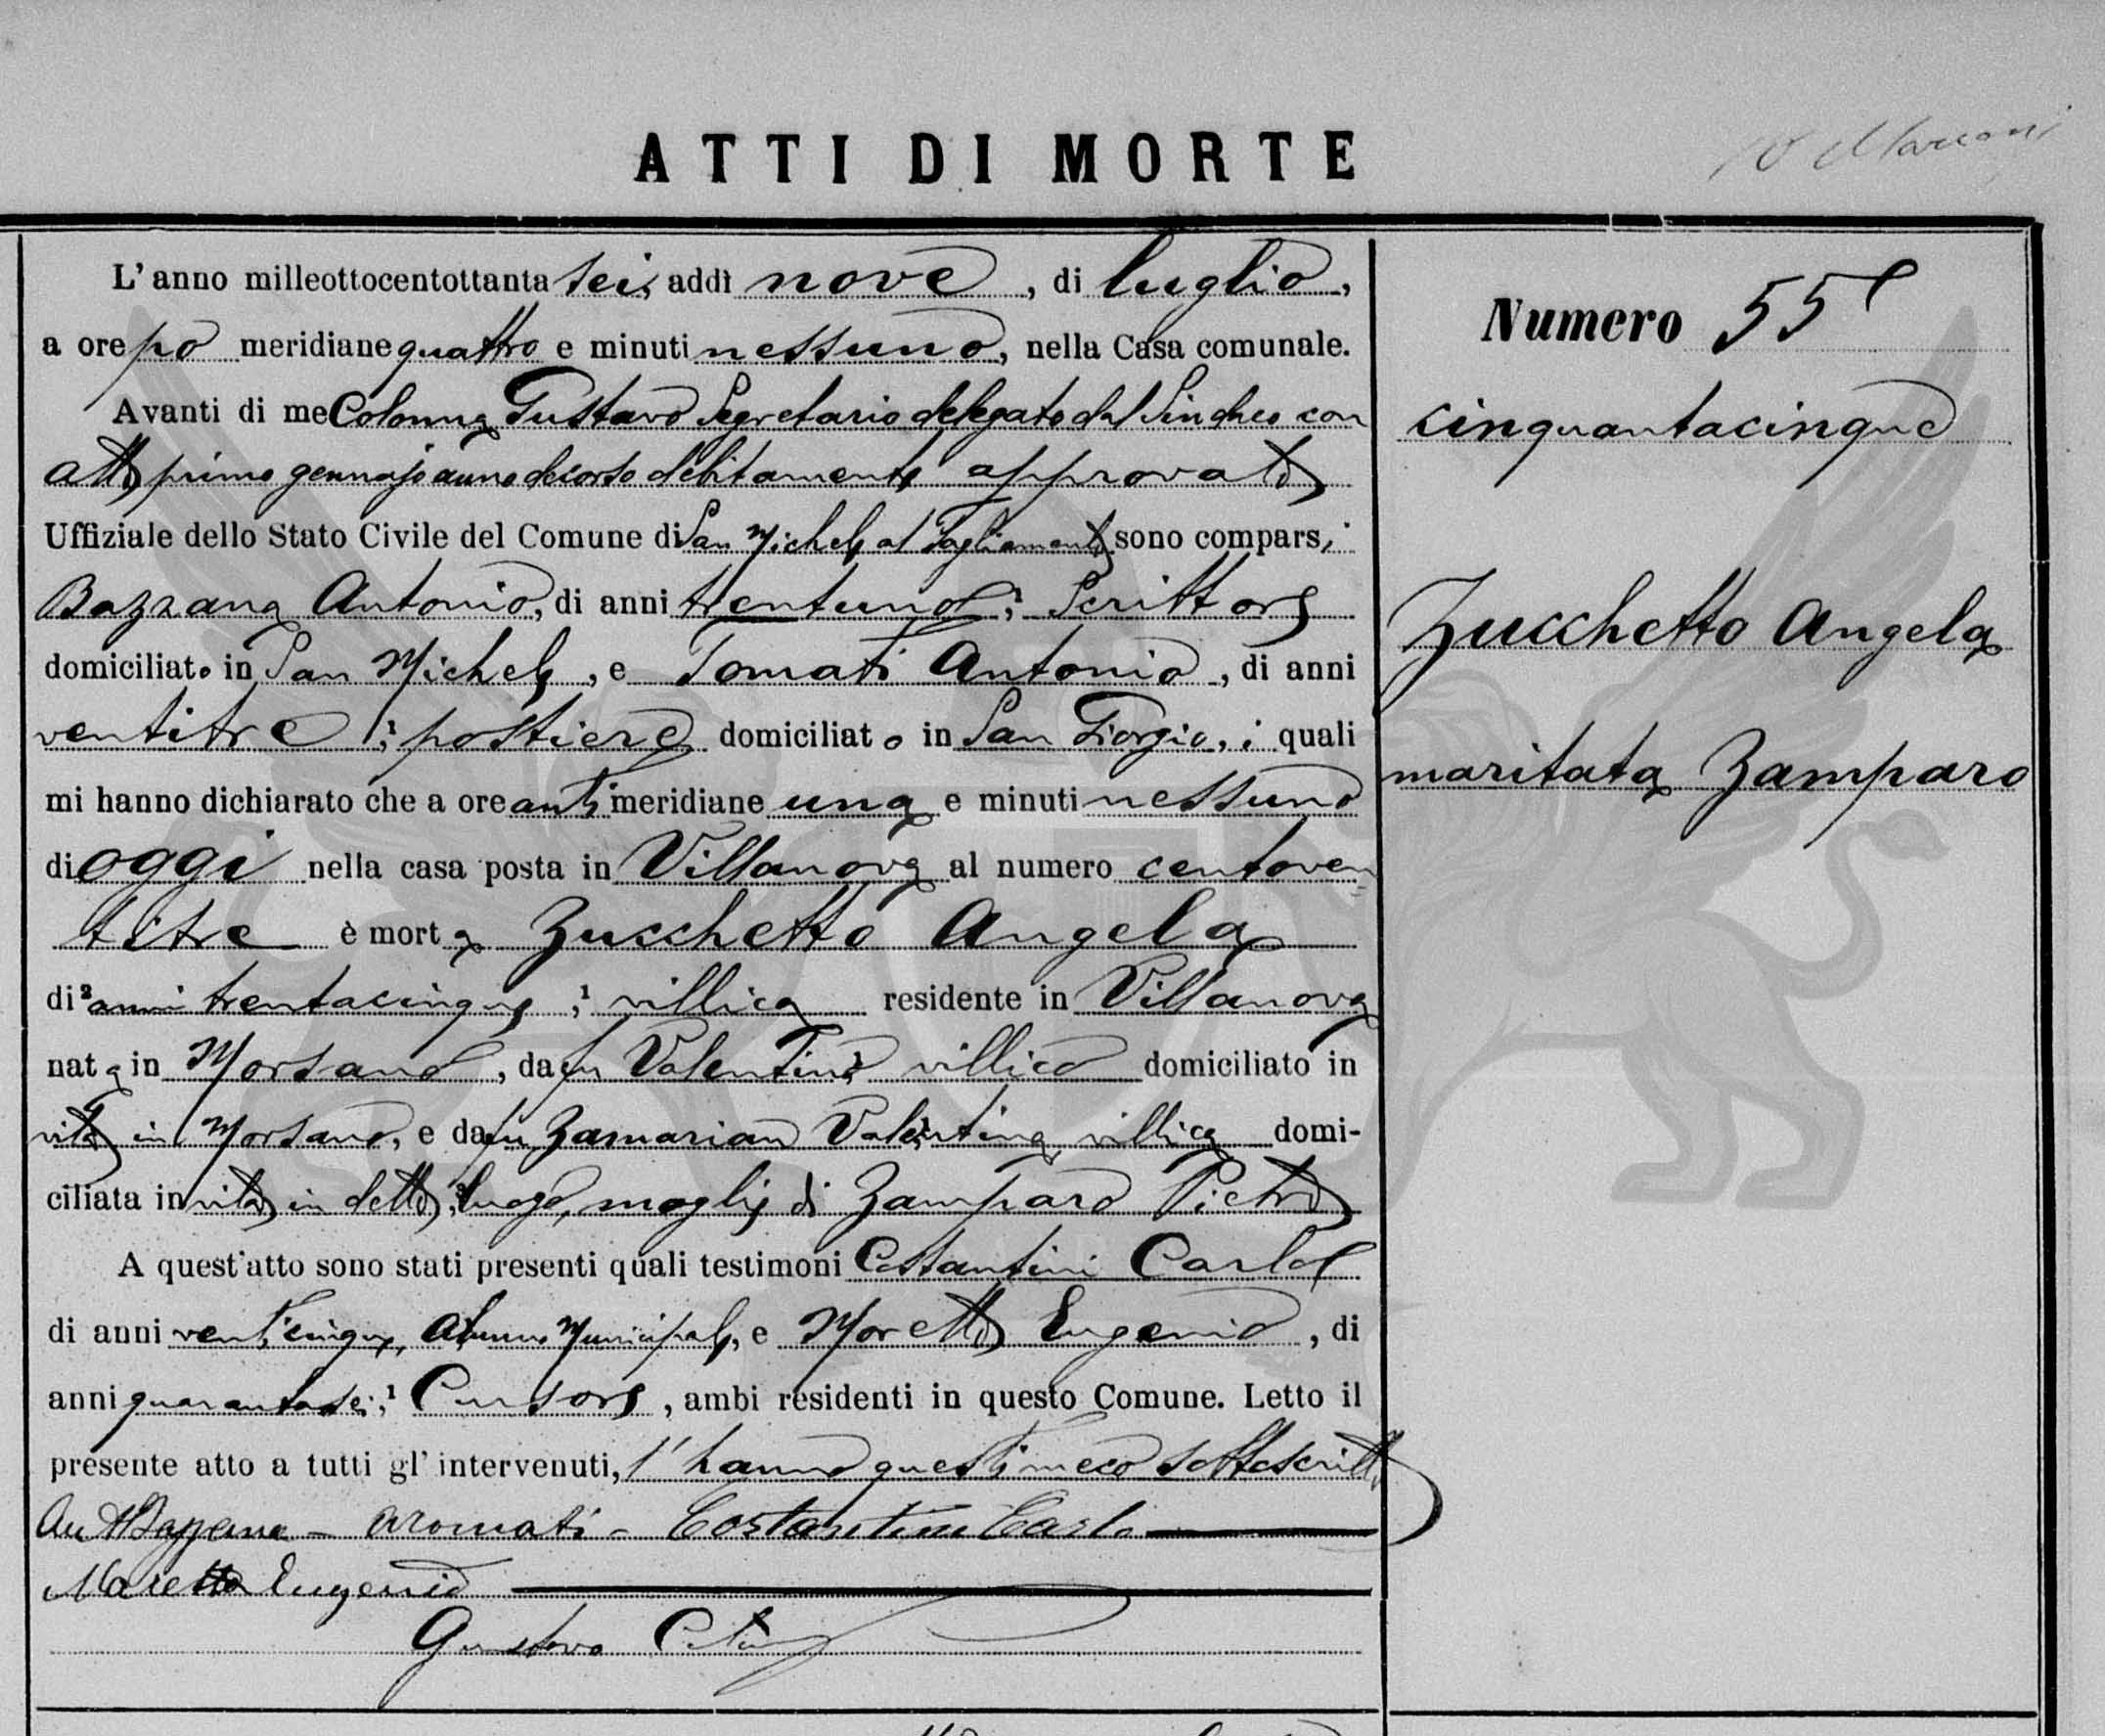 ATTI DI MORTE
L'anno milleottocentottanta sei, addì nove, di luglio,
a ore po meridiane quattro e minuti nessuno, nella Casa comunale.
Avanti di me Colonna Gustavo Segretario delegato dal Sindaco con
atto primo gennajo anno decorso debitamente approvato
Uffiziale dello Stato Civile del Comune di San Michele al Tagliamento sono comparsi
Bazzana Antonio, di anni trentuno;¹ Scrittore
domiciliato in San Michele, e Tomati Antonio, di anni
ventitre;¹ postiere domiciliato in San Giorgio, i quali
mi hanno dichiarato che a ore anti meridiane una e minuti nessuno
di oggi nella casa posta in Villanova al numero centoven
titre è morta Zucchetto Angela
di² anni trentacinque;¹ villica residente in Villanova
nata in Morsano, da fu Valentino villico domiciliato in
vita in Morsano, e da fu Zamarian Valentina villica domi-
ciliata in vita in detto luogo, moglie di Zamparo Pietro
A quest'atto sono stati presenti quali testimoni Costantini Carlo
di anni venticinque, Alunno Municipale, e Moretto Eugenio, di
anni quarantasei;¹ Cursore, ambi residenti in questo Comune. Letto il
presente atto a tutti gl'intervenuti, l'hanno questi meco sottoscritto
Ant Bazzana - - Costantini Carlo
Moretto Eugenio
Gustavo
Numero 55
cinquantacinque
Zucchetto Angela
maritata Zamparo